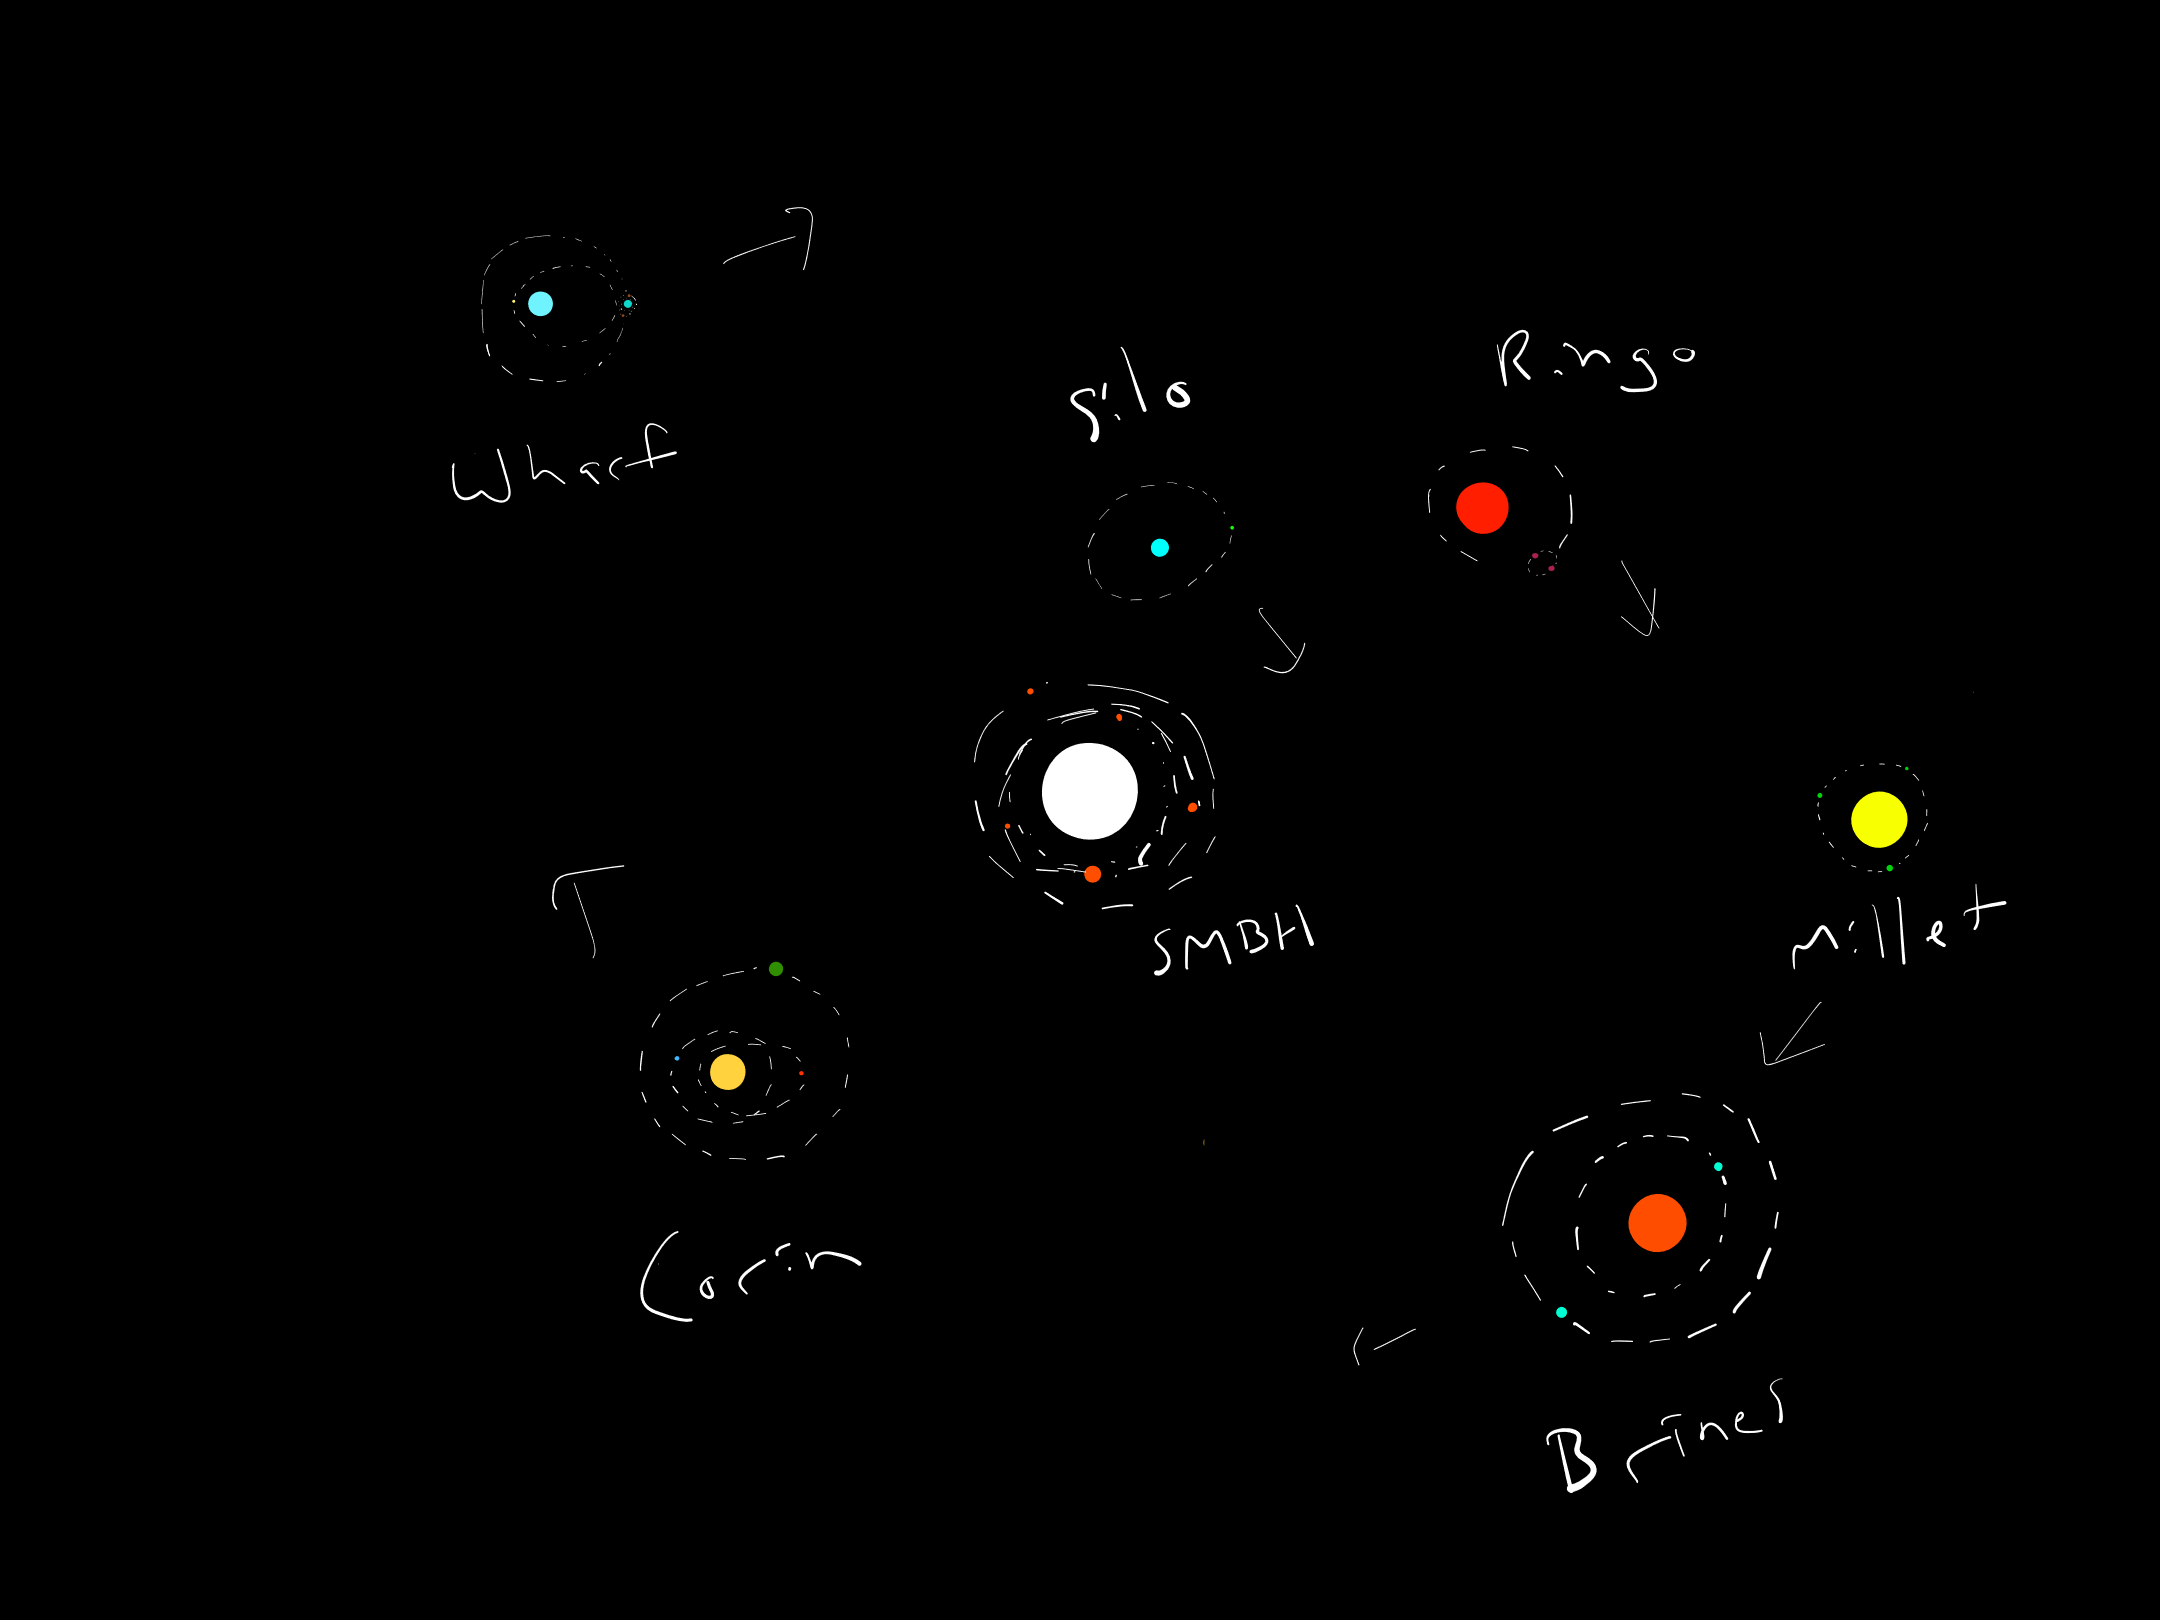 Wharf
Silo
Ringo
SMBH
Millet
Corin
Brines